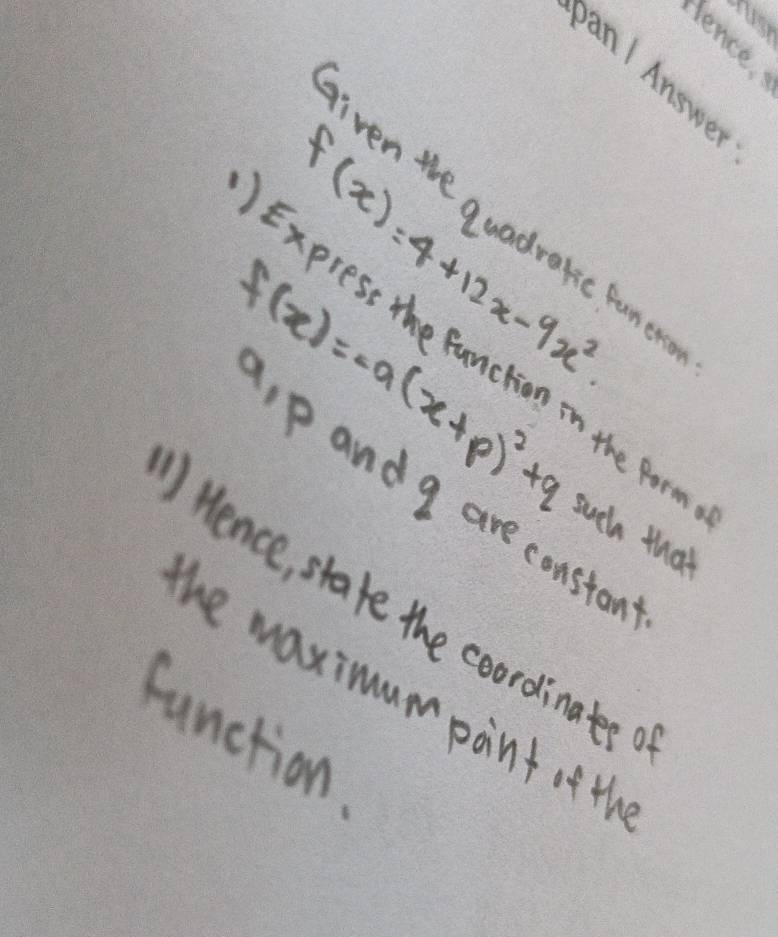 Hence, st
apan / Answer :
Given the quadratic function :
f(x) = 4 + 12x - 9x².
i) Express the function in the form of
f(x) = -a(x+p)² + q such that
a, p and q are constant.
ii) Hence, state the coordinates of
the maximum point of the
function.